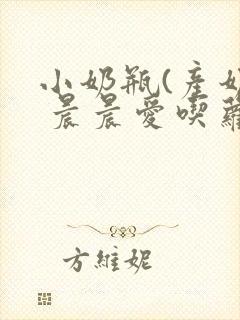 小奶瓶(產奶
晨晨愛喫蘿
方維妮